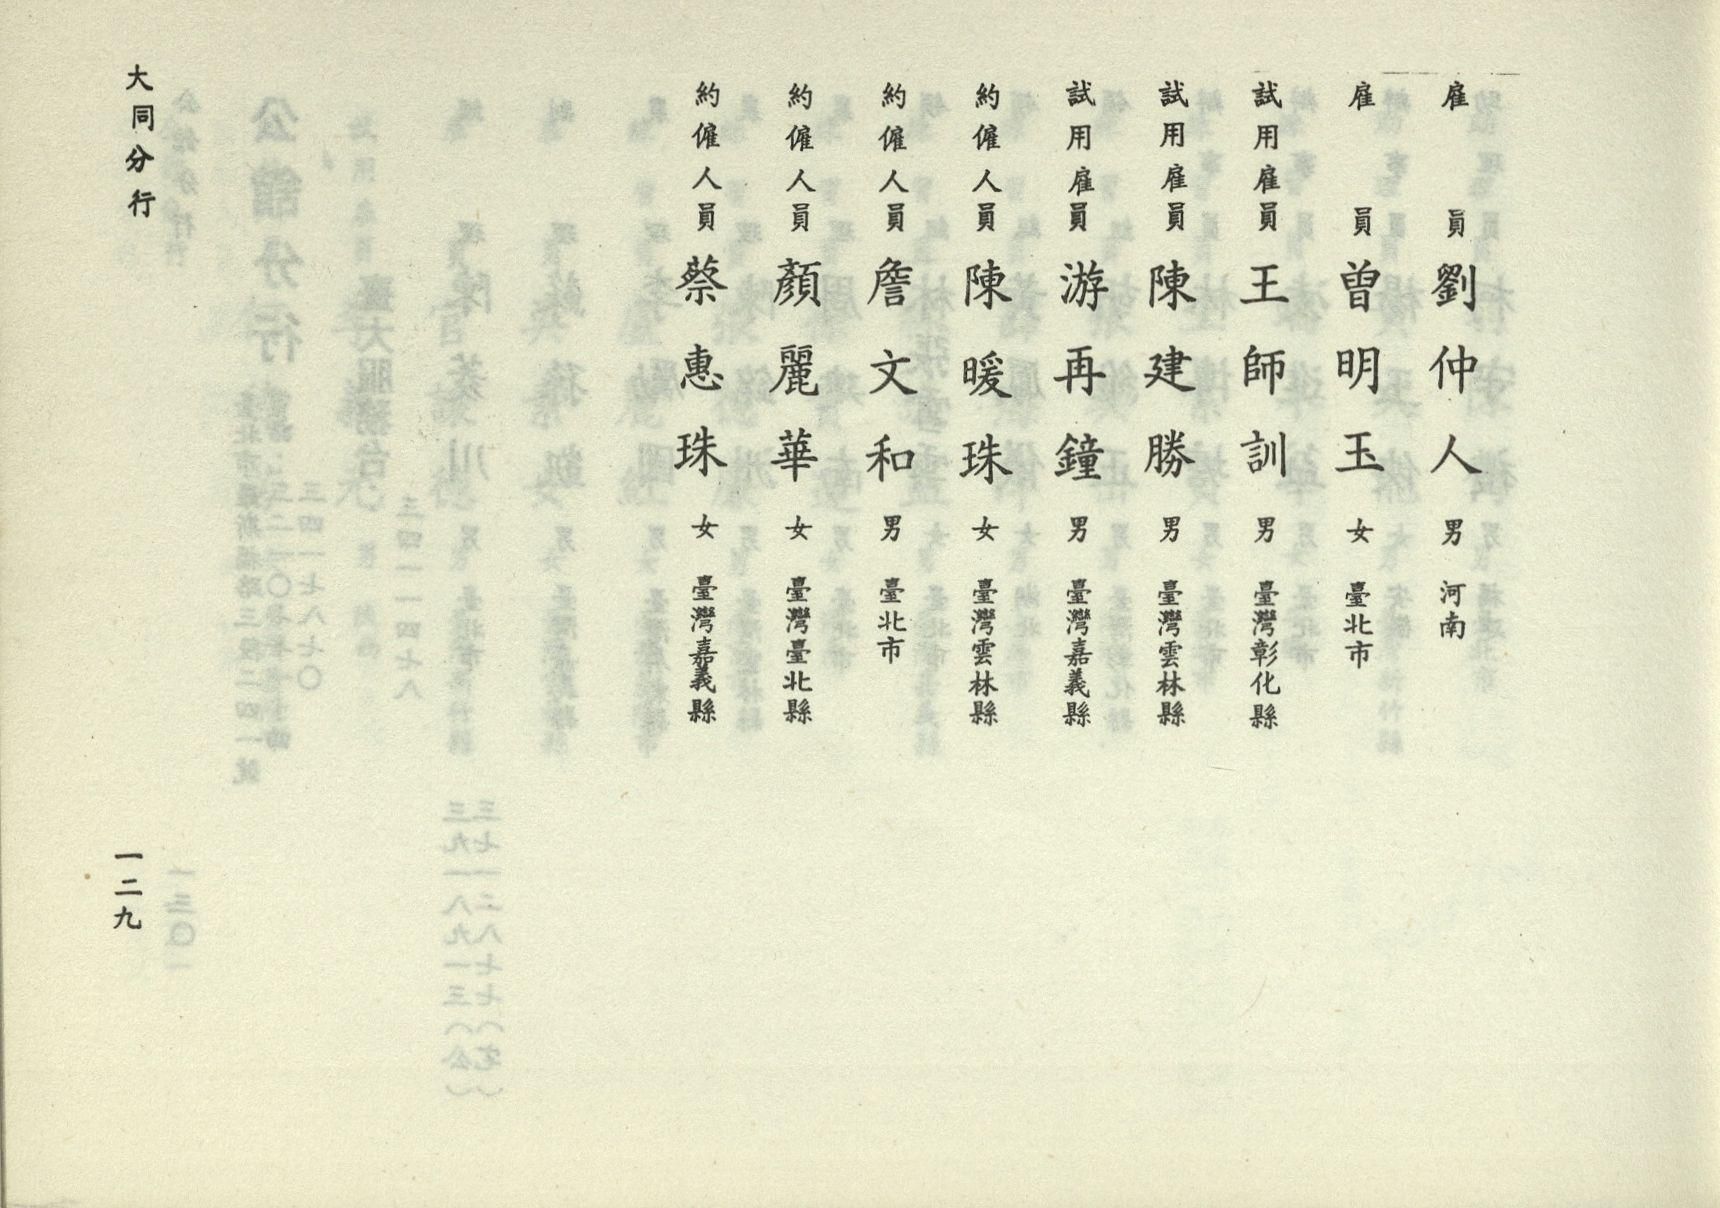 雇員 劉仲人 男 河南
雇員 曾明玉 女 臺北市
試用雇員 王師訓 男 臺灣彰化縣
試用雇員 陳建勝 男 臺灣雲林縣
試用雇員 游再鐘 男 臺灣嘉義縣
約僱人員 陳暖珠 女 臺灣雲林縣
約僱人員 詹文和 男 臺北市
約僱人員 顏麗華 女 臺灣臺北縣
約僱人員 蔡惠珠 女 臺灣嘉義縣
大同分行 一二九